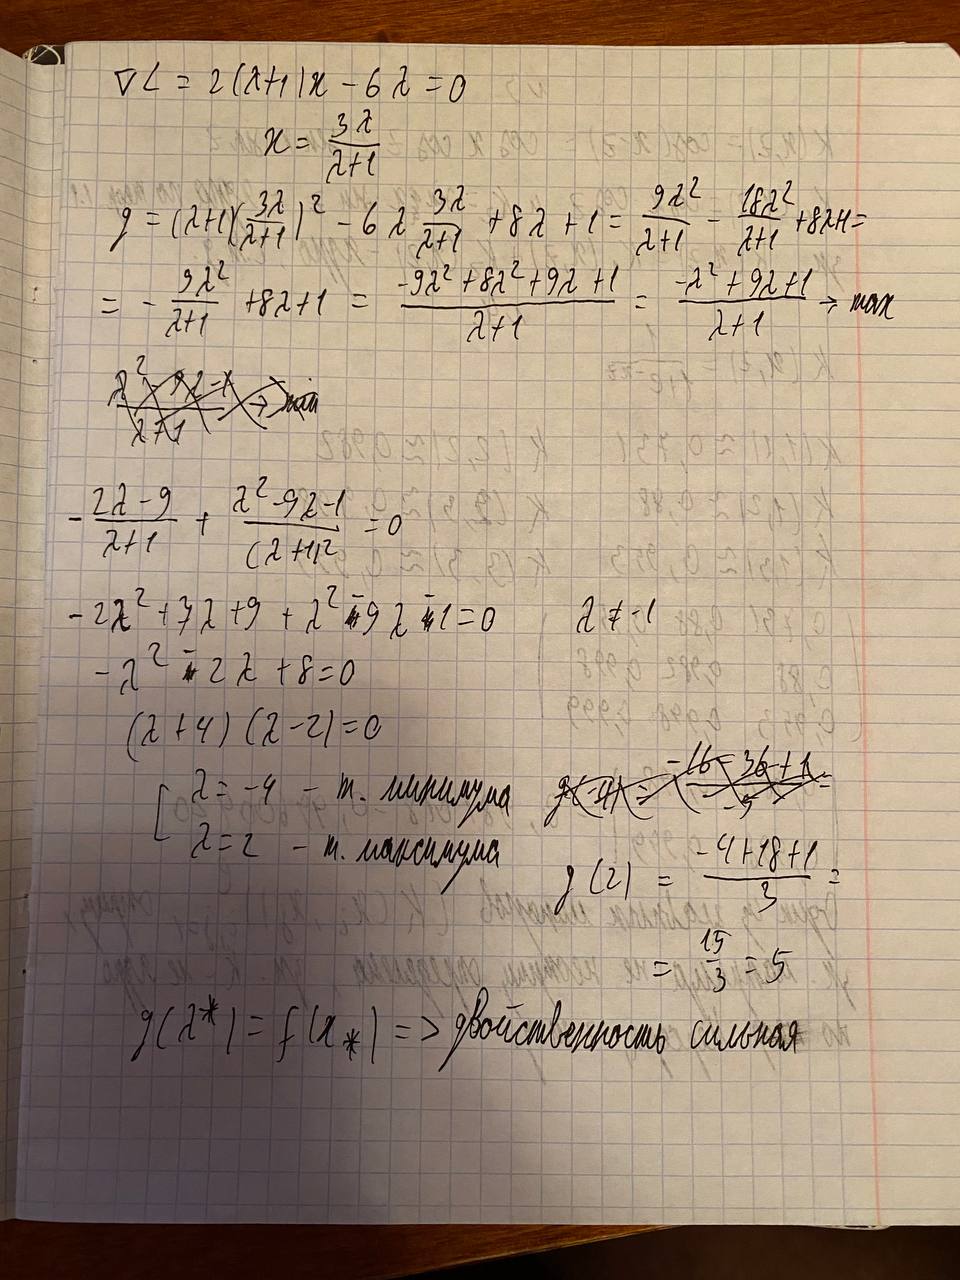 ∇L = 2(λ+1)x − 6λ = 0
x = 3λ/(λ+1)
g = (λ+1)(3λ/(λ+1))² − 6λ 3λ/(λ+1) + 8λ + 1 = 9λ²/(λ+1) − 18λ²/(λ+1) + 8λ+1 =
= − 9λ²/(λ+1) + 8λ+1 = (−9λ² + 8λ² + 9λ + 1)/(λ+1) = (−λ² + 9λ + 1)/(λ+1) → max
− (2λ − 9)/(λ+1) + (λ² − 9λ − 1)/(λ+1)² = 0
− 2λ² + 7λ + 9 + λ² − 9λ − 1 = 0 λ ≠ −1
− λ² − 2λ + 8 = 0
(λ + 4)(λ − 2) = 0
[ λ = −4 – т. минимума
λ = 2 – т. максимума
g(2) = (−4+18+1)/3 =
= 15/3 = 5
g(λ*) = f(x_*) => двойственность сильная